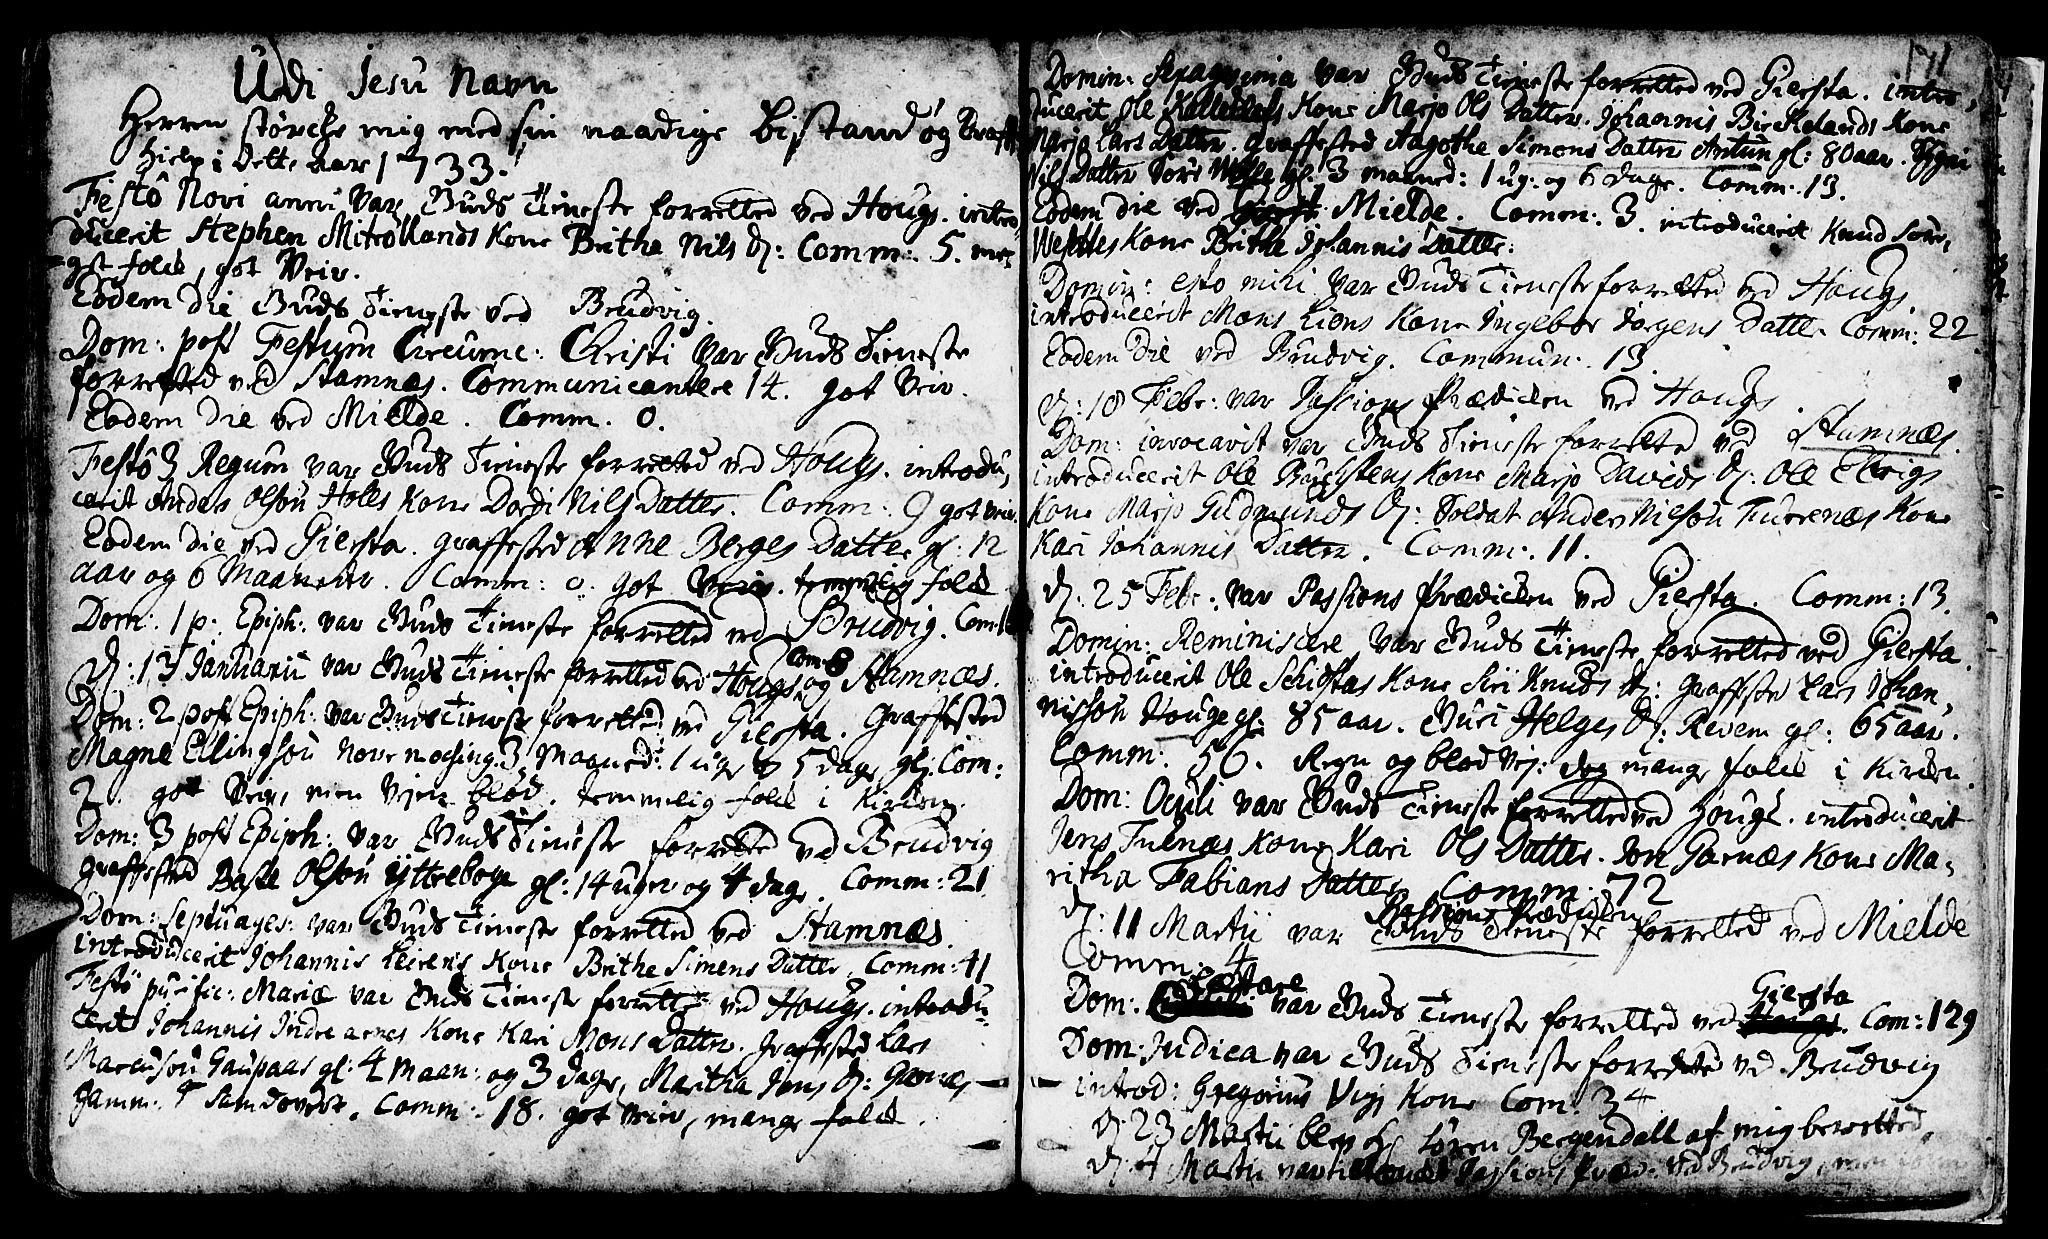 Udi Jesu Navn
Herren störche mig med sin naadige bistand og Krafft
hielp i Dette aar 1733.
Festô Novi anni var Guds Tieneste forretted ved Hougs. intro-
ducerit Stephen Mitrollands Kone Brithe Nils D: Comm: 5. me-
get folck, got Veir.
Eodem die Guds Tieneste ved Brudvig.
Dom: post Festum Circumc: Christi var Guds Tieneste
forretted ved Stamnæs. Communicantere 14. got Veir.
Eodem die ved Mielde. Comm. 0.
Festô 3 Regum var Guds Tieneste forretted ved Hougs. introdu-
cerit Anders Olsön Holes Kone Dordi Nils Datter. Comm: 9 got veir.
Eodem die ved Giersta. graffested Anne Berges Datter gl: 12
aar og 6 Maaneder. Comm: 0. got Veir. temmelig folck
Dom: 1 p: Epiph: var Guds Tieneste forretted ved Brudvig. Com:
D: 13 Januarii var Guds Tieneste forretted ved Hougs Com: 8 og Stamnæs.
Dom: 2 post Epiph: var Guds Tieneste forretted ved Giersta. Graffested
Magne Ellingsön 3 Maaned: 1 uge og 5 dage gl: Com:
2. got Veir, men Vejen blöd. temmelig folck i Kircken.
Dom: 3 post Epiph: var Guds Tieneste forretted ved Brudvig
graffested Baste Olsön Yttreboge gl: 14 uger og 4 dage. Comm: 21
Dom: Septuages: var Guds Tieneste forretted ved Stamnæs.
introducerit Johannis Leirens Kone Brithe Simens Datter. Comm: 41
Festô purific: Mariæ var Guds Tieneste forretted ved Hougs. introdu-
cerit Johannis Indre arnes Kone Kari Mons Datter. Graffested Lars
Marcusön Gaupaas gl: 4 Maan: og 3 dage, Maritha Jens D: Garnæs
gamm: Comm: 18. got veir, mange folck.
171
Domin: Sexagesima var Guds Tieneste forretted ved Giersta. intro-
ducerit Ole Kone Marjo Ols Datter. Johannis Birkelands Kone
Marjo Lars Datter. graffested Aagothe Simons Datter Antun gl: 80 aar.
Nils Datter Söre gl: 3 maaned: 1 ug: og 6 dage. Comm: 13.
Eodem die ved Mielde. Comm: 3. introducerit Knud Söre-
Kone Britha Johannis Datter:
Domin: esto mihi var Guds Tieneste forretted ved Hougs
introducerit Mons Lions Kone Ingebor Jörgens Datter Comm: 22.
Eodem Die ved Brudvig. Commun: 13.
D: 18 Febr: var Passions Prædicken ved Hougs.
Dom: invocavit var Guds Tieneste forretted ved Stamnæs.
introducerit Ole Kone Marjo Davids D: Ole
Kone Marjo Gudmunds D: Soldat Anders Nielsön Furrenæs Kone
Kari Johannis Datter. Comm: 11.
D: 25 Febr: var Passions Prædicken ved Giersta. Comm: 13.
Domin: Reminiscere var Guds Tieneste forretted ved Giersta.
introducerit Ole Schiöstas Kone Siri Knuds D: Graffested Lars Johan-
nissön Houge gl: 85 aar. Guri Helges D: Revem gl: 65 aar.
Comm: 56. Regn og blöd Vej: dog mange folck i Kircken.
Dom: Oculi var Guds Tieneste forretted ved Hougs. introducerit
Jens Tulnæs Kone Kari Ols Datter. Jon Garnæs Kone Ma-
ritha Fabians Datter Comm: 72
Passions Prædicken
D: 11 Martii var Guds Tieneste forretted ved Mielde
Comm: 4
Dom: Lætare var Guds Tieneste forretted ved Giersta Hougs. Com: 129
Dom: Judica var Guds Tieneste forretted ved Brudvig
introd: Gregorius Vigs Kone Com: 34
D: 23 Martii blev Hr Sören Bergendall af mig beretted.
D: 4 Martii var Passions Præd: ved Brudvig, men